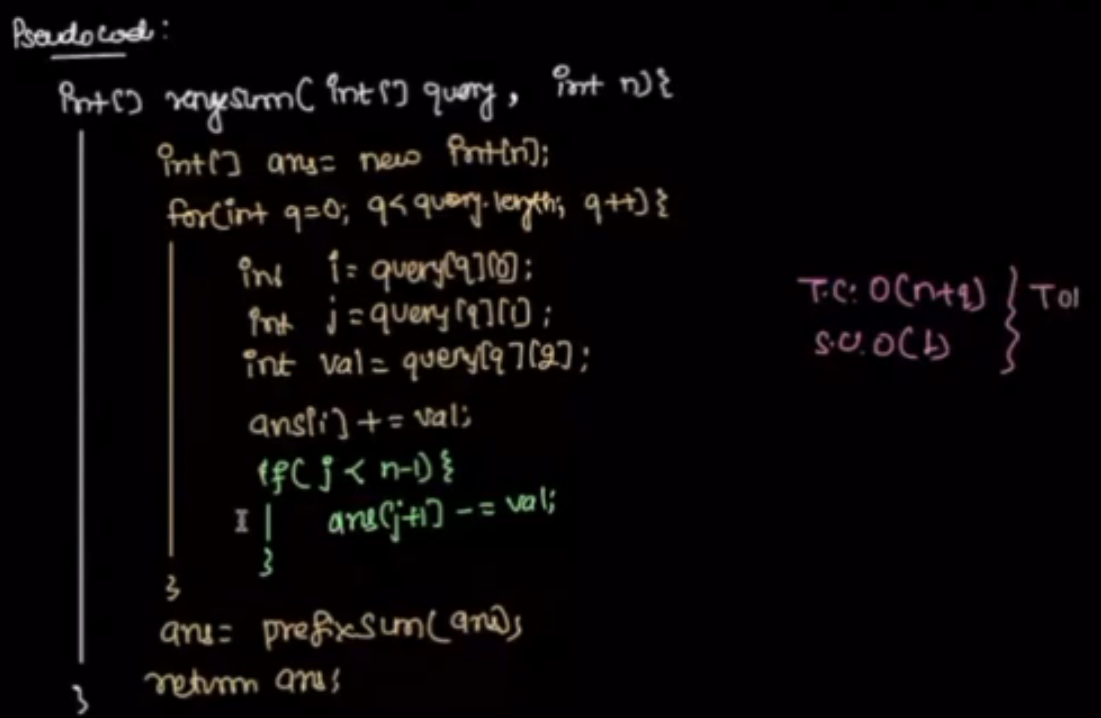 Pseudocod:
int[] rangesum( int[] query, int n){
int[] ans= new int[n];
for(int q=0; q<query.length; q++){
int i= query[q][0];
int j= query[q][1];
int val= query[q][2];
ans[i] += val;
if( j < n-1){
ans[j+1] -= val;
}
}
ans= prefixsum(ans);
return ans;
}
T.C: O(n+q)
S.C. O(1)